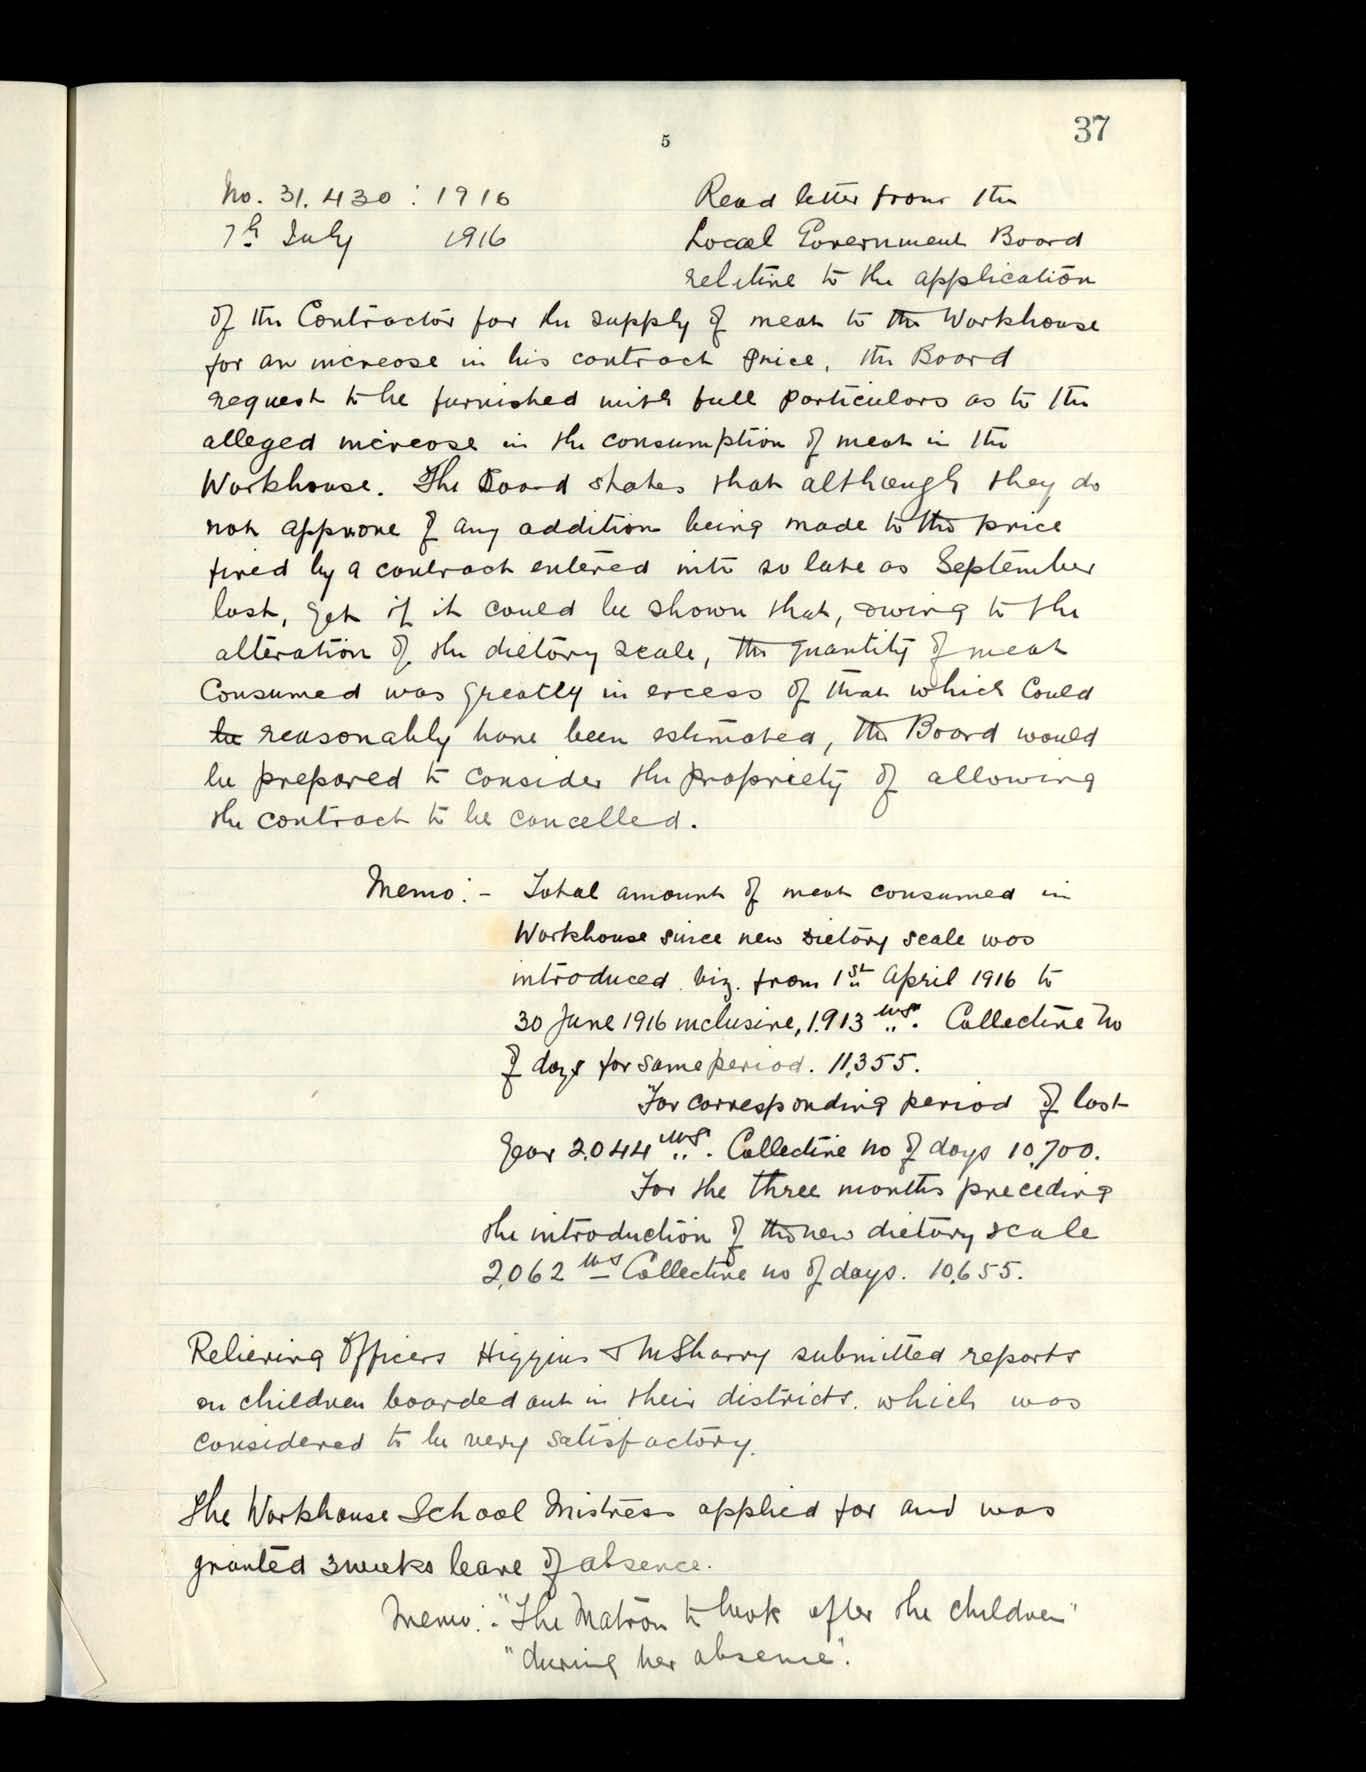 37
5
No. 31.430 : 1916 Read letter from the
7th July 1916 Local Government Board
relitive to the application
of the Contractor for the supply of meat to the Workhouse
for an increase in his contract price, the Board
request to be furnished with full particulars as to the
alleged increase in the consumption of meat in the
Workhouse. The Board states that although they do
not approve of any addition being made to the price
fixed by a contract entered into so late as September
last, yet if it could be shown that, owing to the
alteration of the dietary scale, the quantity of meat
Consumed was greatly in excess of that which Could
be reasonably have been estimated, the Board would
be prepared to consider the propriety of allowing
the contract to be cancelled.
Memo:- Total amount of meat consumed in
Workhouse since new Dietary scale was
introduced viz. from 1st April 1916 to
30 June 1916 inclusive, 1.913 lbs. Collective No
of days for same period. 11,355.
For corresponding period of last
year 2.044 lbs. Collective no of days 10,700.
For the three months preceding
the introduction of the new dietary scale
2,062 lbs Collective no of days. 10,655.
Relieving Officers Higgins & McSharry submitted reports
on children boarded out in their districts. which was
considered to be very satisfactory.
The Workhouse School Mistress applied for and was
granted 3 weeks leave of absence.
Memo:- "The Matron to look after the children"
"during her absence".